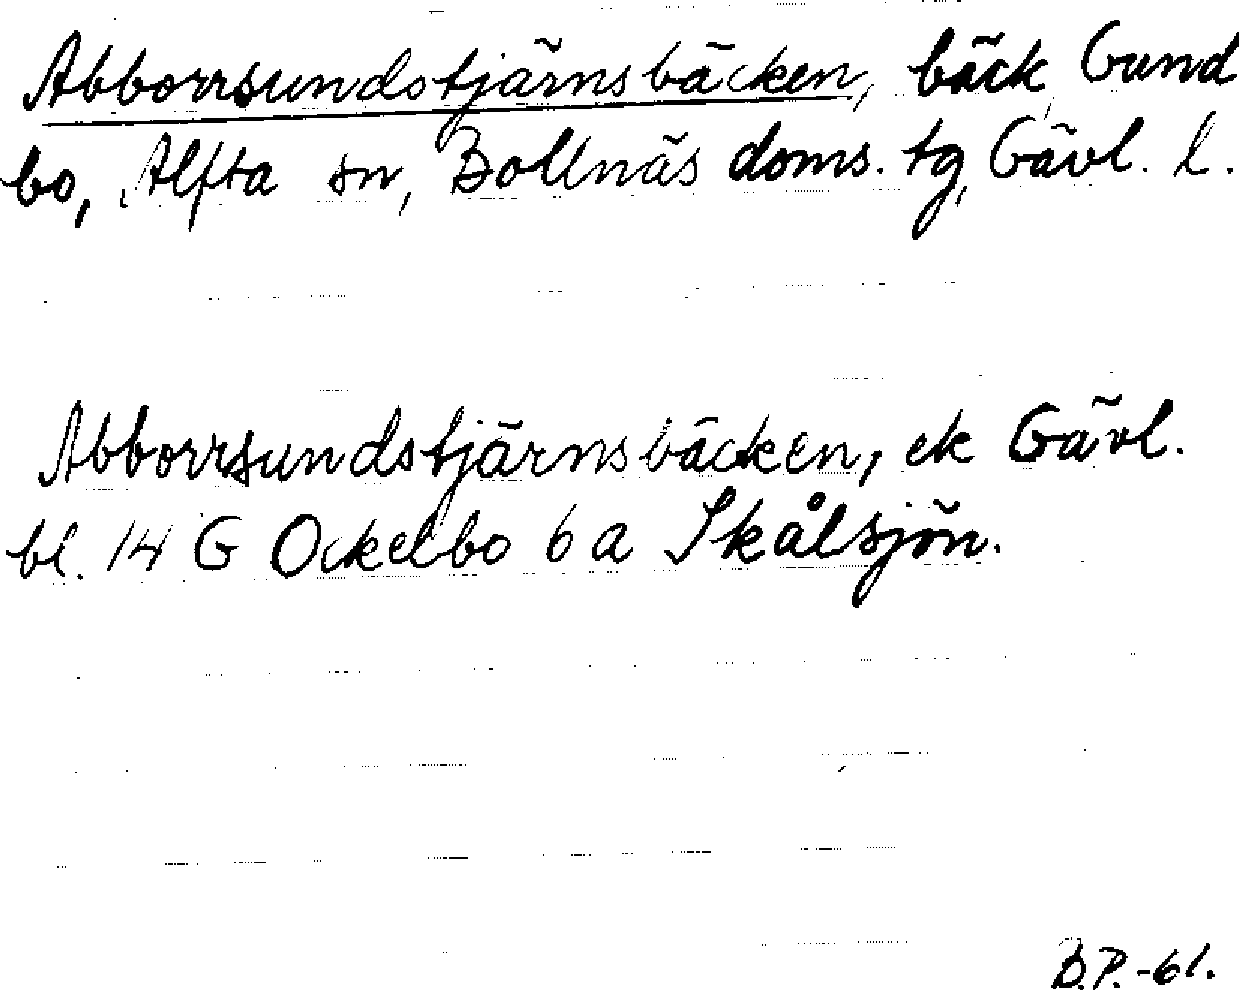 Abborrsundstjärnsbäcken, bäck, Gund
bo, Alfta sn, Bollnäs doms. tg, Gävl. l.
Abborrsundstjärnsbäcken, ek Gävl.
bl. 14 G Ockelbo 6 a Skålsjön.
B.P.-61.